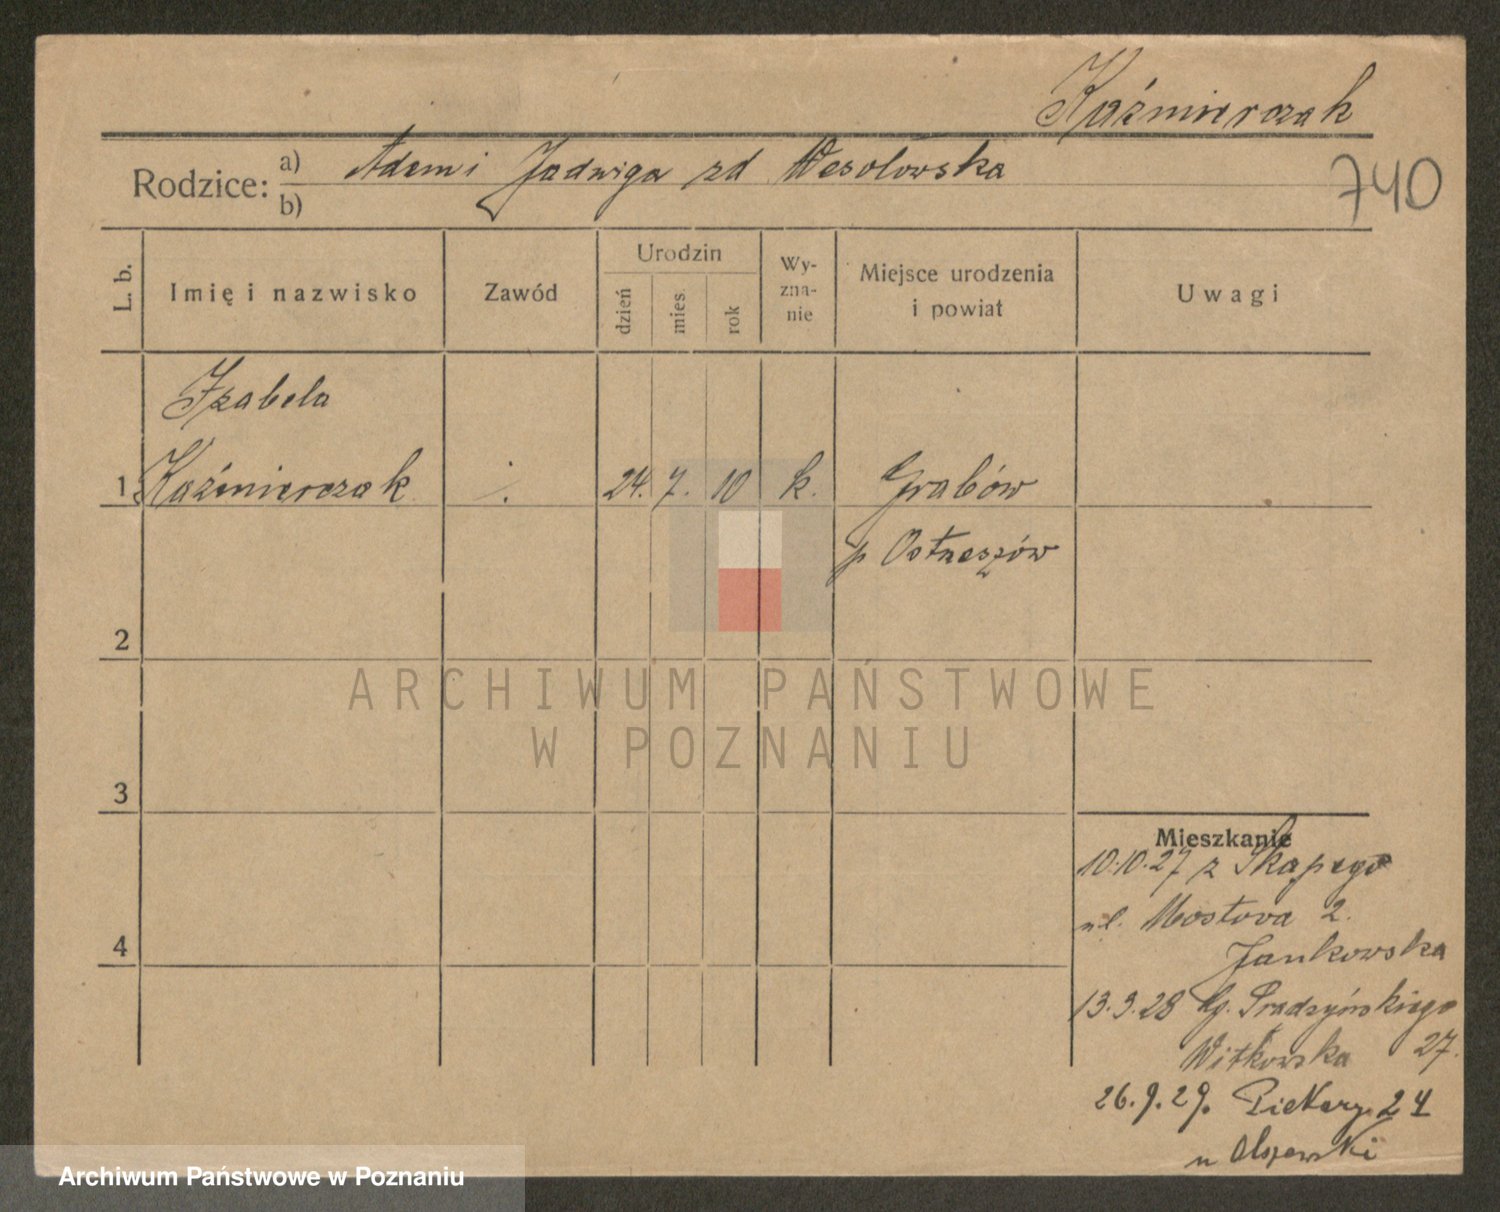 Kaźmierczak
Rodzice: a) Adam i Jadwiga zd Wesołowska
b)
740
L. b.
Imię i nazwisko
Zawód
Urodzin
dzień
mies.
rok
Wy-
zna-
nie
Miejsce urodzenia
i powiat
Uwagi
Izabela
1 Kaźmierczak 24. 7. 10 k. Grabów
p Ostrzeszów
2
3
4
Mieszkanie
10.10.27 z Skapego
ul. Mostowa 2.
Jankowska
13.3.28 Prądzyńskiego
Witkowska 27.
26.9.29. Piekary 24
u Olszewski
ARCHIWUM PAŃSTWOWE
W POZNANIU
Archiwum Państwowe w Poznaniu